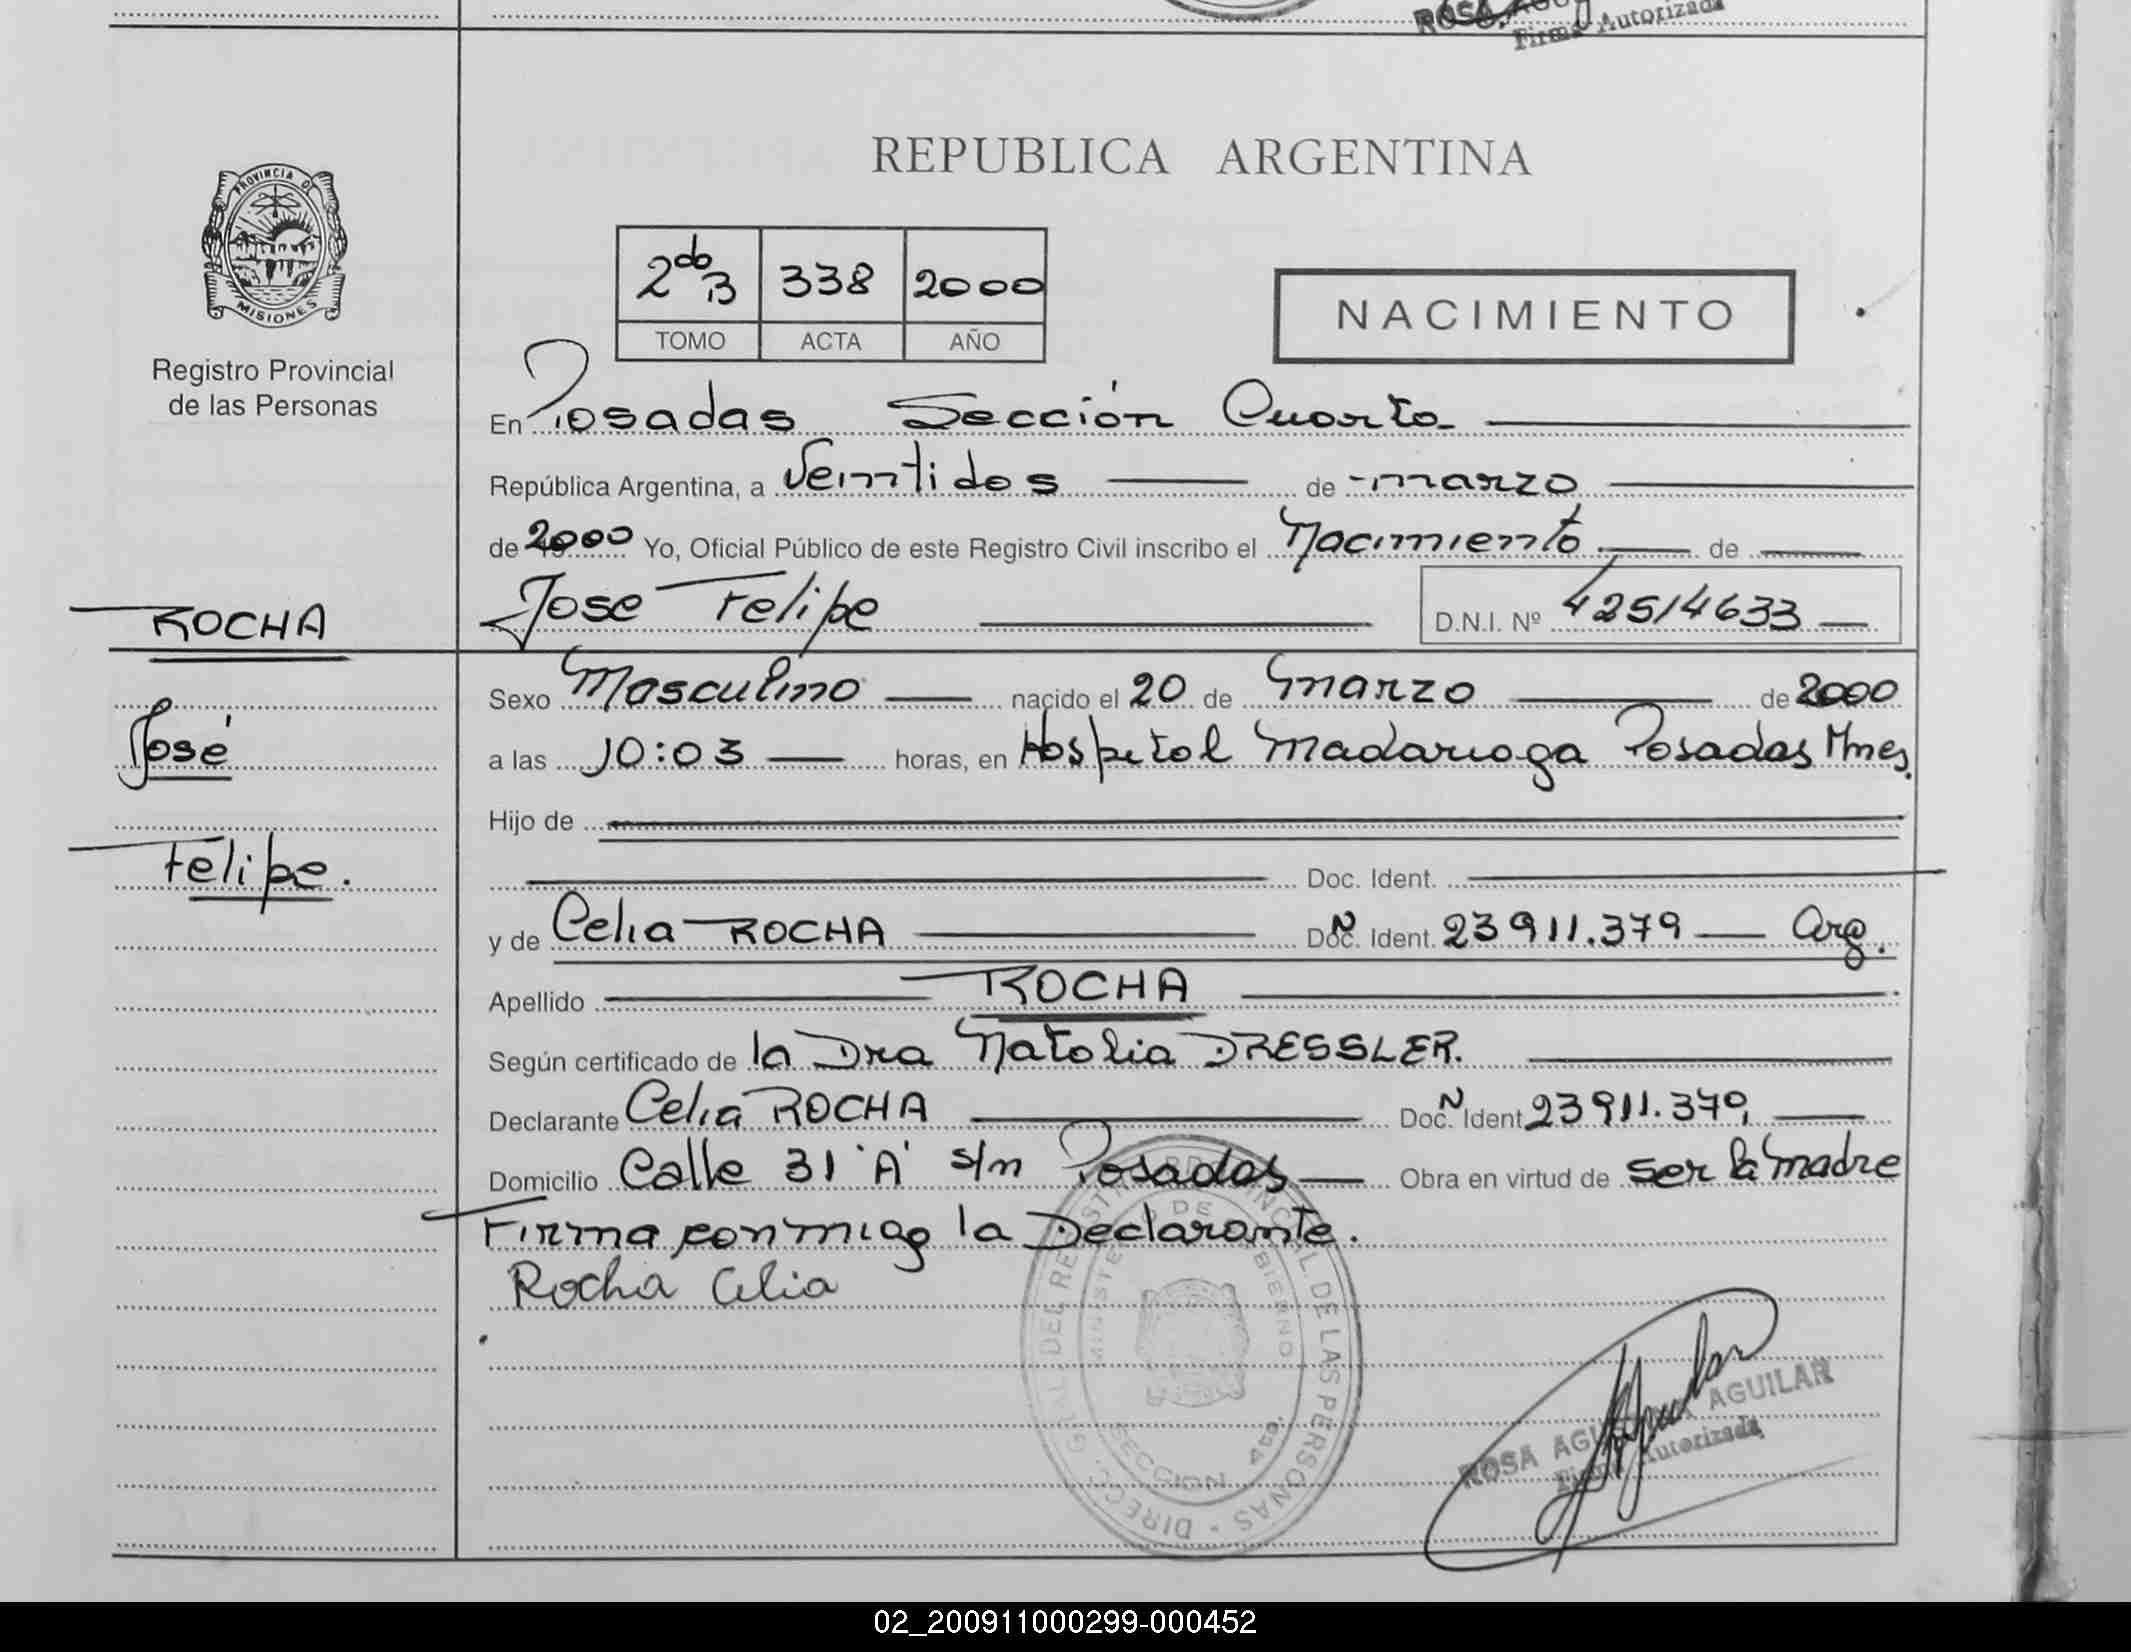 ROSA
Firma Autorizada
PROVINCIA DE
MISIONES
Registro Provincial
de las Personas
REPUBLICA ARGENTINA
2do B 338 2000
TOMO ACTA AÑO
NACIMIENTO
En Posadas Sección Cuarta
República Argentina, a Veintidos de marzo
de 2000 Yo, Oficial Público de este Registro Civil inscribo el Nacimiento de
ROCHA
Jose Felipe D.N.I. Nº 42514633
Sexo Masculino nacido el 20 de marzo de 2000
José
a las 10:03 horas, en Hospital Madariaga Posadas Mnes.
Hijo de
Felipe.
Doc. Ident.
y de Celia ROCHA Doc. Ident. N 23911.379 Arg.
Apellido ROCHA
Según certificado de la Dra Natalia DRESSLER.
Declarante Celia ROCHA Doc. N Ident 23911.379,
Domicilio Calle 31 'A' s/n Posadas Obra en virtud de ser la madre
Firma conmigo la Declarante.
Rocha Celia
DIRECC. GRAL. DEL REGISTRO PROVINCIAL DE LAS PERSONAS
MINISTERIO DE GOBIERNO
SECCION 4ta.
ROSA AGUILAR
Firma Autorizada
02_200911000299-000452